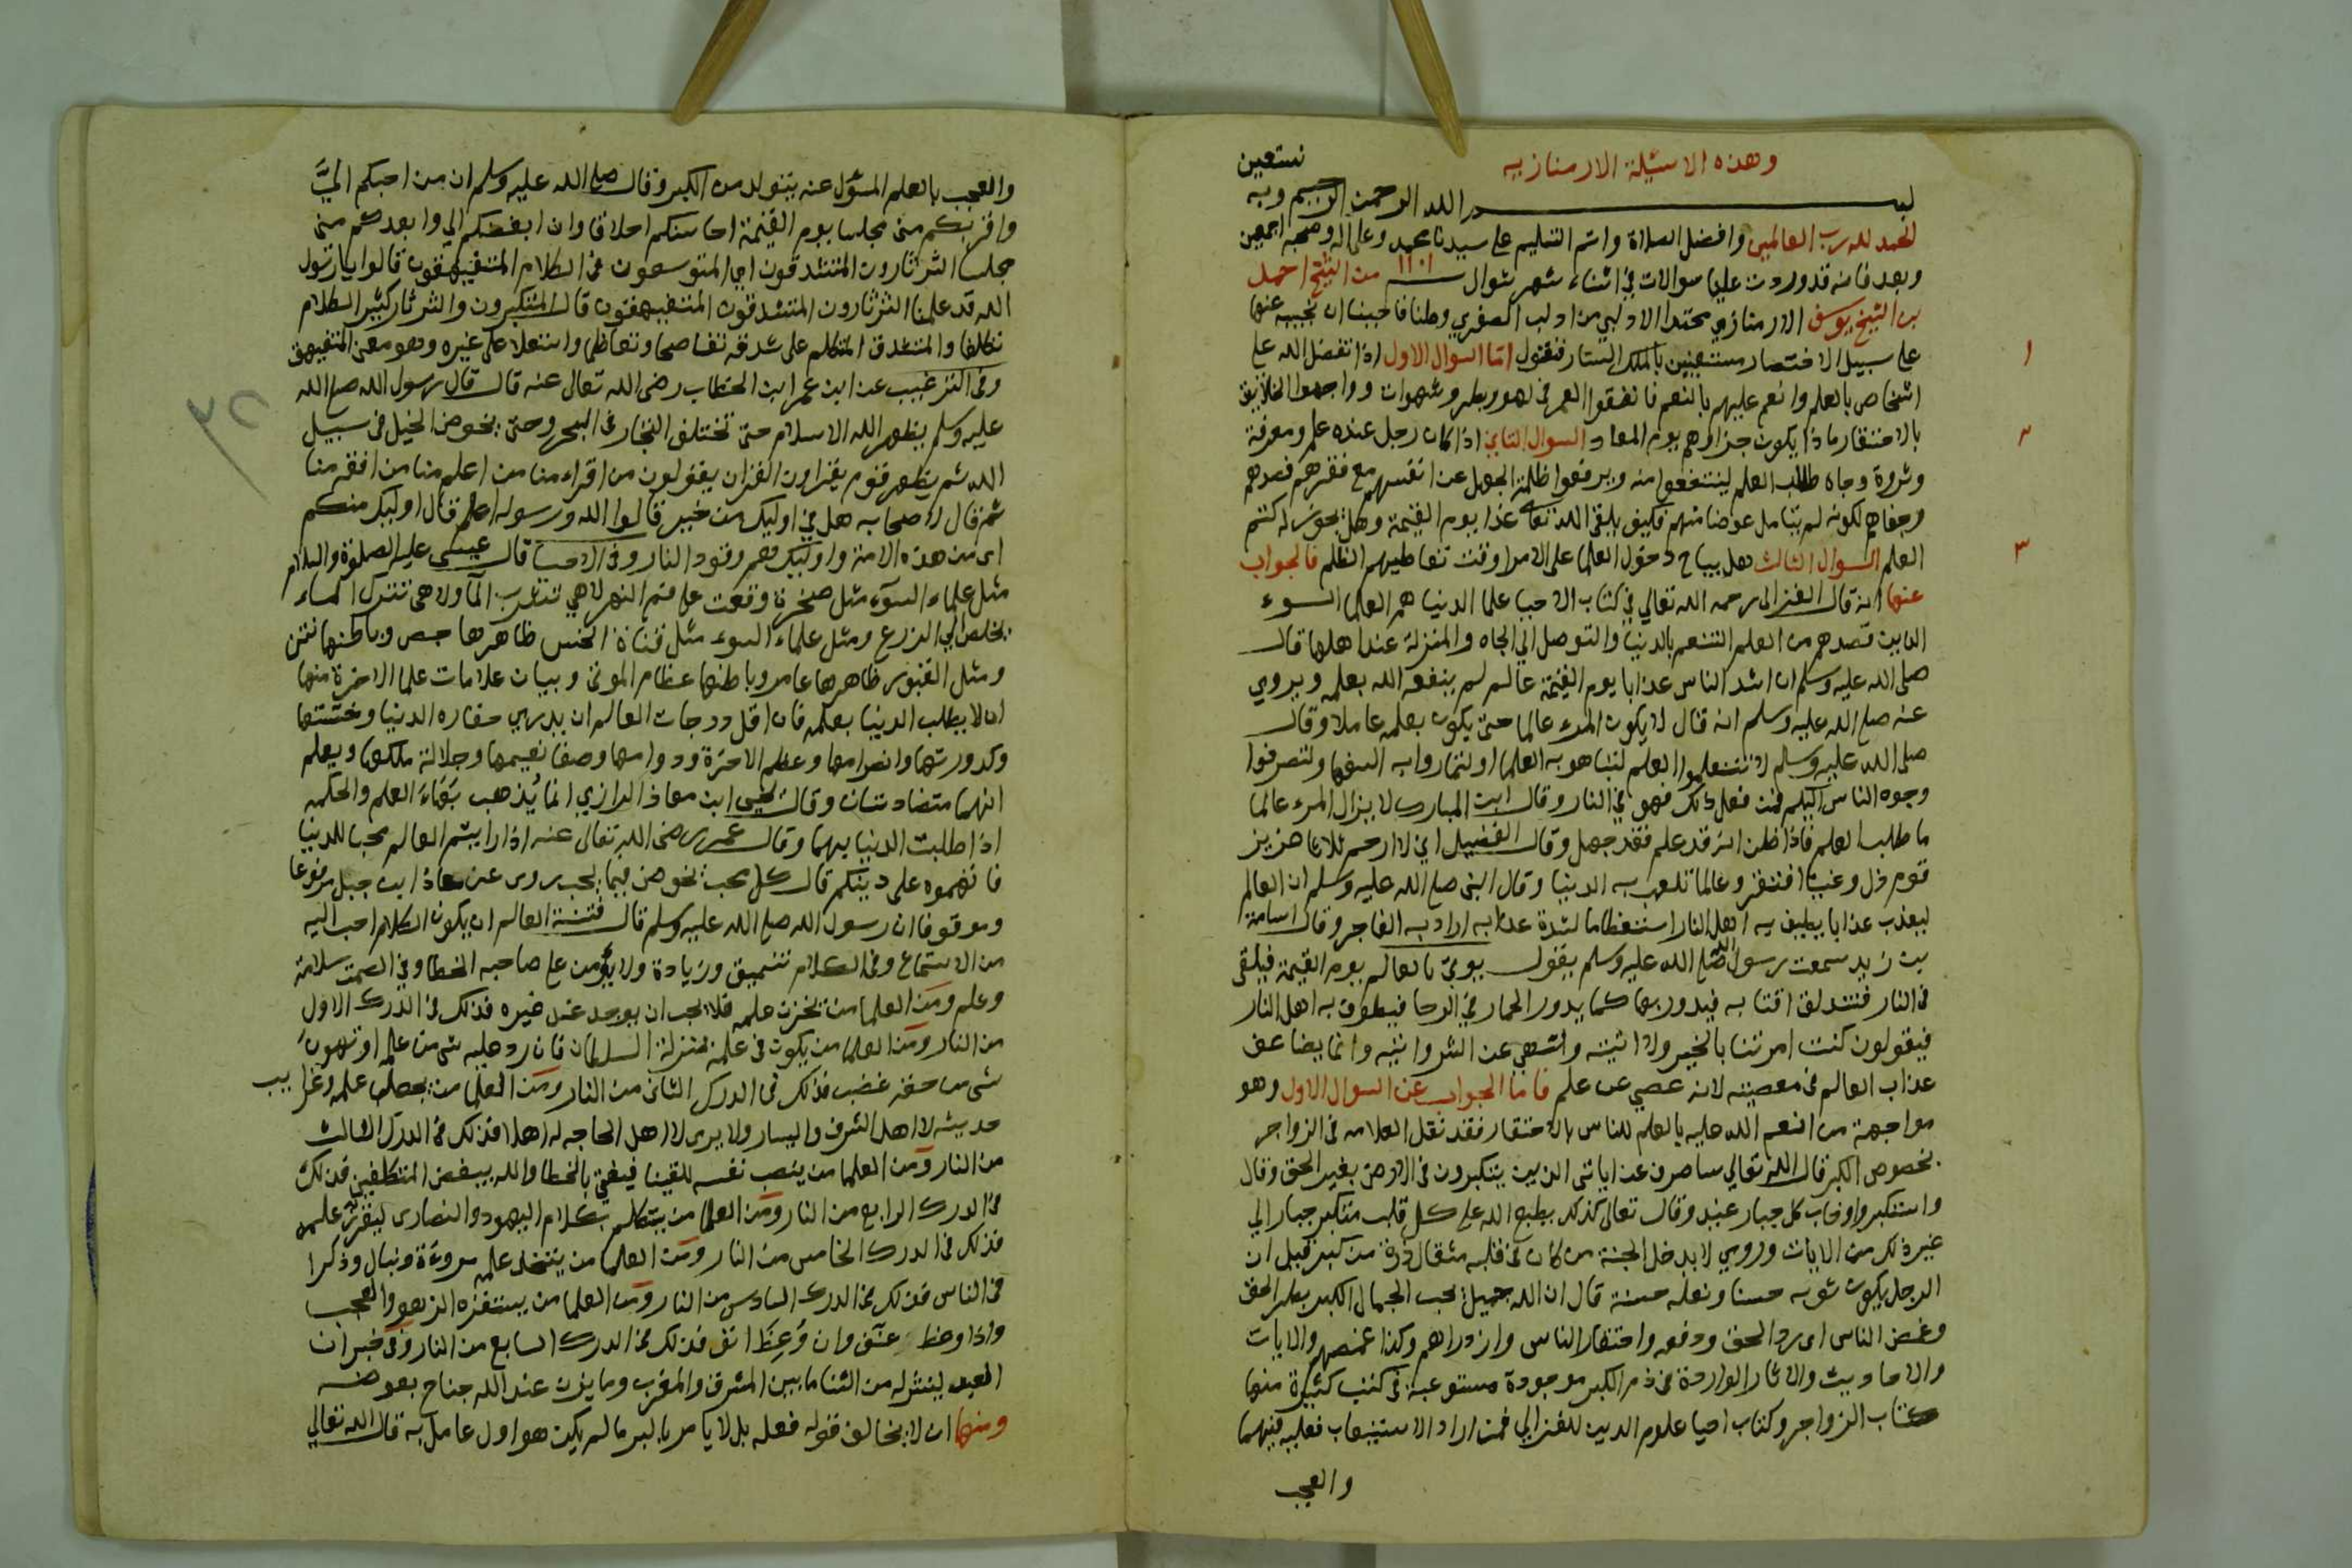 وهذه الاسئلة الارمنازيه
بسم الله الرحمن الرحيم وبه نستعين
الحمد لله رب العالمين وافضل الصلاة واتم التسليم على سيدنا محمد وعلى اله وصحبه اجمعين
وبعد فانه قد وردت علينا سوالات في اثناء شهر شوال سنة ١١٠١ من الشيخ احمد
بن الشيخ يوسف الارمنازي محتدا الادلبي من ادلب الصغري وطنا فاحببنا ان نجيبه عنها
على سبيل الاختصار مستعينين بالملك الستار فنقول اما السوال الاول اذا تفضل الله على
١
اشخاص بالعلم وانعم عليهم بالنعم فانفقوا العمر في لهو وبطر وشهوات وواجهوا الخلايق
بالاحتقار ماذا يكون جزاوهم يوم المعاد السوال الثاني اذا كان رجل عنده علم ومعرفة
٢
وثروة وجاه طلب العلم لينتفعوا منه ويرفعوا ظلمة الجهل عن انفسهم مع فقرهم فصدهم
وجفاهم لكونه لم يتامل عوضا منهم فكيف يلقى الله تعالى غدا يوم القيمة وهل يجوز له كتم
العلم السوال الثالث هل يباح دخول العلما على الامرا وقت تعاطيهم الظلم فالجواب
٣
عنها انه قال الغزالي رحمه الله تعالي في كتاب الاحيا علما الدنيا هم العلما السوء
الذين قصدهم من العلم التنعم بالدنيا والتوصل الي الجاه والمنزلة عند اهلها قال
صلى الله عليه وسلم ان اشد الناس عذابا يوم القيمة عالم لم ينفعه الله بعلمه ويروي
عنه صلى الله عليه وسلم انه قال لا يكون المرء عالما حتى يكون بعلمه عاملا وقال
صلى الله عليه وسلم لا تتعلموا العلم لتباهو به العلما او لتماروا به السفها ولتصرفوا
وجوه الناس اليكم فمن فعل ذلك فهو في النار وقال ابن المبارك لا يزال المرء عالما
ما طلب العلم فاذا ظن انه قد علم فقد جهل وقال الفضيل اني لا ارحم ثلاثا عزيز
قوم ذل وغنيا افتقر وعالما تلعب به الدنيا وقال النبي صلى الله عليه وسلم ان العالم
ليعذب عذابا يطيف به اهل النار استعظاما لشدة عذابه اراد به الفاجر وقال اسامة
بن زيد سمعت رسول الله صلى الله عليه وسلم يقول يوتى بالعالم يوم القيمة فيلقى
في النار فتندلق اقتابه فيدور بها كما يدور الحمار في الرحا فيطوف به اهل النار
فيقولون كنت امرتنا بالخير ولا اتيته وانتهي عن الشر واتيه وانما يضاعف
عذاب العالم في معصيته لانه عصي عن علم فاما الجواب عن السوال الاول وهو
مواجهة من انعم الله عليه بالعلم للناس بالاحتقار فقد نقل العلامه في الزواجر
بخصوص الكبر قال الله تعالي ساصرف عن اياتي الذين يتكبرون في الارض بغير الحق وقال
واستكبروا وخاب كل جبار عنيد وقال تعالى كذلك يطبع الله على كل قلب متكبر جبار الي
غير ذلك من الايات وروي لا يدخل الجنة من كان في قلبه مثقال ذرة من كبر قيل ان
الرجل يكون ثوبه حسنا ونعله حسنة قال ان الله جميل يحب الجمال الكبر بطر الحق
وغمص الناس اي رد الحق ودفعه واحتقار الناس وازدراهم وكذا غمصهم والايات
والاحاديث والاثار الواردة في ذم الكبر موجودة مستوعبة في كتب كثيرة منها
كتاب الزواجر وكتاب احيا علوم الدين للغزالي فمن اراد الاستيعاب فعليه فيهما
والعجب
والعجب بالعلم المسؤل عنه يتولد من الكبر وقال صلى الله عليه وسلم ان من احبكم الىَّ
واقربكم مني مجلسا يوم القيمة احاسنكم اخلاقا وان ابغضكم الي وابعدكم مني
مجلسا الثرثارون المتشدقون اي المتوسعون في الكلام المتفيهقون قالوا يا رسول
الله قد علمنا الثرثارون المتشدقون المتفيهقون قال المتكبرون والثرثار كثير الكلام
تكلفا والمتشدق المتكلم على شدقه تفاصحا وتعاظما واستعلا على غيره وهو معنى المتفيهق
وفي الترغيب عن ابن عمر ابن الخطاب رضى الله تعالى عنه قال قال رسول الله صلى الله
عليه وسلم يظهر الله الاسلام حتى تختلف التجار في البحر وحتى يخوض الخيل في سبيل
الله ثم يظهر قوم يقراون القران يقولون من اقراء منا من اعلم منا من افقه منا
ثم قال لاصحابه هل في اوليك من خير قالوا الله ورسوله اعلم قال اوليك منكم
اي من هذه الامة واوليك هم وقود النار وفي الاحيا قال عيسى عليه الصلوة والسلام
مثل علماء السوء مثل صخرة وقعت على فم النهر لا هي تشرب المآ ولا هي تترك الماء
يخلص الي الزرع ومثل علماء السوء مثل قناة الحش ظاهرها جص وباطنها نتن
ومثل القبور ظاهرها عامر وباطنها عظام الموتى وبيان علامات علما الاخرة منها
ان لا يطلب الدنيا بعلمه فان اقل درجات العالم ان يدري حقاره الدنيا وخستها
وكدورتها وانصرامها وعظم الاخرة ودوامها وصفا نعيمها وجلالة ملكها ويعلم
انهما متضادتان وقال يحيى ابن معاذ الرازي انما يُذهب بَهَاءَ العلم والحكمه
اذا طلبت الدنيا بهما وقال عمر رضى الله تعالى عنه اذا رايتم العالم محبا للدنيا
فاتهموه على دينكم قال كل محب يخوض فيما يحب يروى عن معاذ ابن جبل مرفوعا
وموقوفا ان رسول الله صلى الله عليه وسلم قال فتنة العالم ان يكون الكلام احب اليه
من الاستماع وفي الكلام تنميق وزيادة ولا يؤمن على صاحبه الخطا وفي الصمت سلامة
وعلم ومن العلما من يخزن علمه فلا يحب ان يوجد عند غيره فذلك في الدرك الاول
من النار ومن العلما من يكون في علمه بمنزلة السلطان فان رد عليه شي من علمه او تهون
شي من حقه غضب فذلك في الدرك الثاني من النار ومن العلما من يجعل علمه وغرايب
حديثه لاهل الشرف واليسار ولا يرى لاهل الحاجه له اهلا فذلك في الدرك الثالث
من النار ومن العلما من ينصب نفسه للفتيا فيفتي بالخطا والله يبغض المتكلفين فذلك
في الدرك الرابع من النار ومن العلما من يتكلم بكلام اليهود والنصارى ليغزر علمه
فذلك في الدرك الخامس من النار ومن العلما من يتخذ علمه مروءة ونبال وذكرا
في الناس فذلك في الدرك السادس من النار ومن العلما من يستفزه الزهو والعجب
واذا وعظ عنّف وان وُعِظَ انف فذلك في الدرك السابع من النار وفي خبر ان
العبد لينشر له من الثنا ما بين المشرق والمغرب وما يزن عند الله جناح بعوضه
ومنها ان لا يخالف قوله فعله بل لا يامر بالبر ما لم يكن هو اول عامل به قال الله تعالي